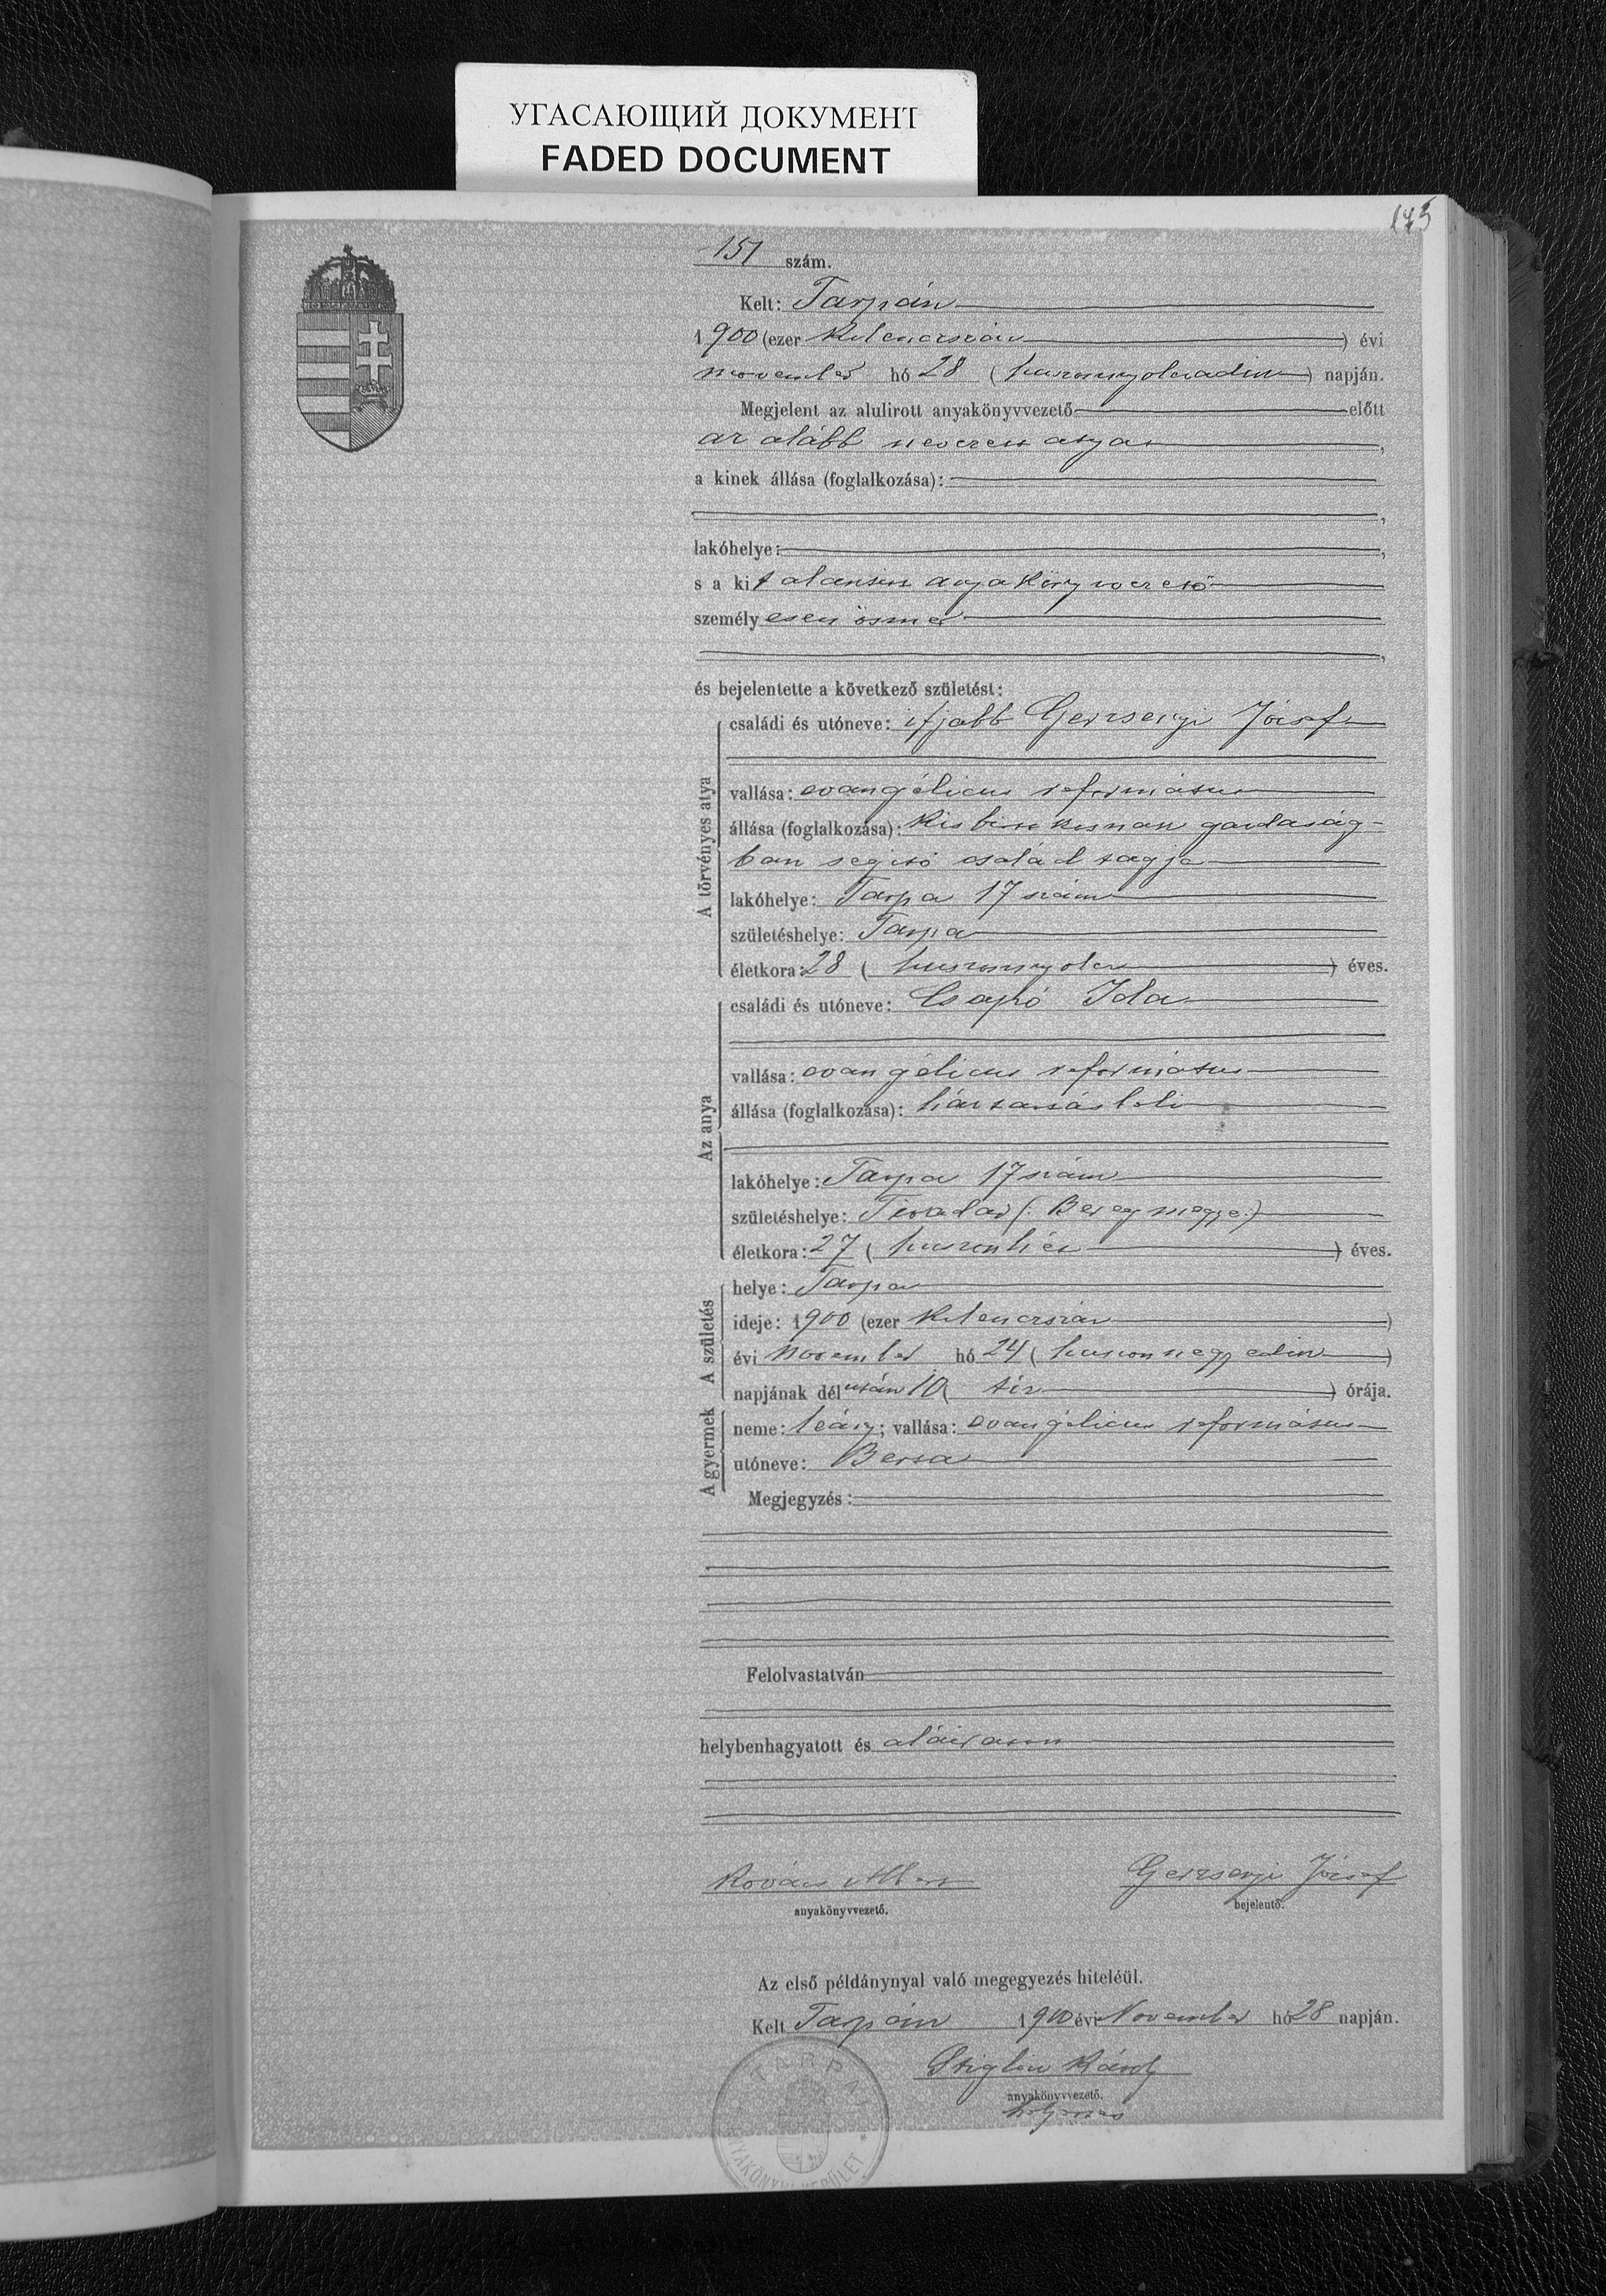 УГАСАЮЩИЙ ДОКУМЕНТ
FADED DOCUMENT
145
151 szám.
Kelt: Tarpán
1900 (ezer kilenczszáz) évi
november hó 28 (huszonnyolczadik) napján.
Megjelent az alulirott anyakönyvvezető előtt
az alább nevezett atya,
a kinek állása (foglalkozása):
lakóhelye:
s a kit alantirt anyakönyvvezető
személyesen ösmer
és bejelentette a következő születést:
A törvényes atya
családi és utóneve: ifjabb Gerzsenyi József
vallása: evangélicus református
állása (foglalkozása): kisbirtokosnak gazdaság-
ban segitő család tagja
lakóhelye: Tarpa 17 szám
születéshelye: Tarpa
életkora: 28 (huszonnyolcz) éves.
Az anya
családi és utóneve: Csapó Ida
vallása: evangélicus református
állása (foglalkozása): háztartásbeli
lakóhelye: Tarpa 17 szám
születéshelye: Tivadar (: Bereg megye :)
életkora: 27 (huszonhét) éves.
A születés
helye: Tarpa
ideje: 1900 (ezer kilenczszáz)
évi november hó 24 (huszonnegyedik)
napjának délután 10 (tiz) órája.
A gyermek
neme: leány; vallása: evangélicus református
utóneve: Berta
Megjegyzés:
Felolvastatván
helybenhagyatott és aláiratott
Kovács Albert
anyakönyvvezető.
Gerzsenyi József
bejelentő.
Az első példánynyal való megegyezés hiteléül.
Kelt Tarpán 1900 évi November hó 28 napján.
Károly
anyakönyvvezető.
helyettes
TARPAI
ANYAKÖNYVI KERÜLET